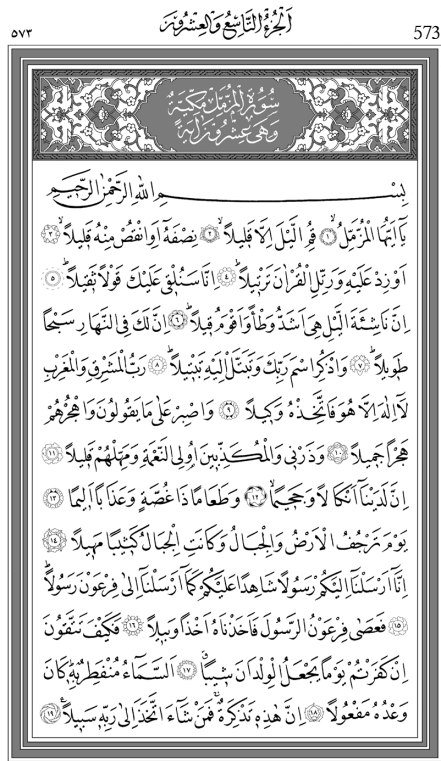 ٥٧٣ اَلْجُزْءُ التَّاسِعُ وَالْعِشْرُونَ 573
سُورَةُ الْمُزَّمِّلِ مَكِّيَّةٌ
وَهِيَ عِشْرُونَ اٰيَةً
بِسْمِ اللّٰهِ الرَّحْمٰنِ الرَّحِيمِ
يَٓا اَيُّهَا الْمُزَّمِّلُۙ ﴿١﴾ قُمِ الَّيْلَ اِلَّا قَلِيلاًۙ ﴿٢﴾ نِصْفَهُٓ اَوِ انْقُصْ مِنْهُ قَلِيلاًۙ ﴿٣﴾
اَوْ زِدْ عَلَيْهِ وَرَتِّلِ الْقُرْاٰنَ تَرْتِيلاًۜ ﴿٤﴾ اِنَّا سَنُلْقِي عَلَيْكَ قَوْلاً ثَقِيلاًۜ ﴿٥﴾
اِنَّ نَاشِئَةَ الَّيْلِ هِيَ اَشَدُّ وَطْـًٔا وَاَقْوَمُ قِيلاًۜ ﴿٦﴾ اِنَّ لَكَ فِي النَّهَارِ سَبْحًا
طَوِيلاًۜ ﴿٧﴾ وَاذْكُرِ اسْمَ رَبِّكَ وَتَبَتَّلْ اِلَيْهِ تَبْتِيلاًۜ ﴿٨﴾ رَبُّ الْمَشْرِقِ وَالْمَغْرِبِ
لَٓا اِلٰهَ اِلَّا هُوَ فَاتَّخِذْهُ وَكِيلاً ﴿٩﴾ وَاصْبِرْ عَلٰى مَا يَقُولُونَ وَاهْجُرْهُمْ
هَجْرًا جَمِيلاً ﴿١٠﴾ وَذَرْنِي وَالْمُكَذِّبِينَ اُولِي النَّعْمَةِ وَمَهِّلْهُمْ قَلِيلاً ﴿١١﴾
اِنَّ لَدَيْنَٓا اَنْكَالاً وَجَحِيمًاۙ ﴿١٢﴾ وَطَعَامًا ذَا غُصَّةٍ وَعَذَابًا اَلِيمًا ﴿١٣﴾
يَوْمَ تَرْجُفُ الْاَرْضُ وَالْجِبَالُ وَكَانَتِ الْجِبَالُ كَثِيبًا مَهِيلاً ﴿١٤﴾
اِنَّٓا اَرْسَلْنَٓا اِلَيْكُمْ رَسُولاً شَاهِدًا عَلَيْكُمْ كَمَٓا اَرْسَلْنَٓا اِلٰى فِرْعَوْنَ رَسُولاًۜ
﴿١٥﴾ فَعَصٰى فِرْعَوْنُ الرَّسُولَ فَاَخَذْنَاهُ اَخْذًا وَبِيلاً ﴿١٦﴾ فَكَيْفَ تَتَّقُونَ
اِنْ كَفَرْتُمْ يَوْمًا يَجْعَلُ الْوِلْدَانَ شِيبًاۗ ﴿١٧﴾ اَلسَّمَٓاءُ مُنْفَطِرٌ بِهِۜ كَانَ
وَعْدُهُ مَفْعُولاً ﴿١٨﴾ اِنَّ هٰذِهِ تَذْكِرَةٌۚ فَمَنْ شَٓاءَ اتَّخَذَ اِلٰى رَبِّهِ سَبِيلاًࣖ ﴿١٩﴾